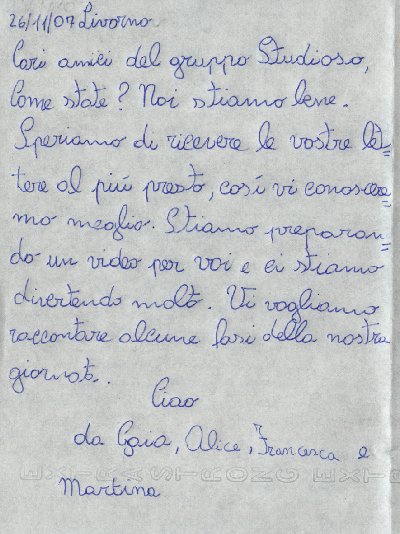 26/11/07 Livorno
Cari amici del gruppo Studioso,
Come state? Noi stiamo bene.
Speriamo di ricevere le vostre let=
tere al più presto, così vi conoscere=
mo meglio. Stiamo preparan=
do un video per voi e ci stiamo
divertendo molto. Vi vogliamo
raccontare alcune fasi della nostra
giornat..
Ciao
da Gaia, Alice, Francesca e
Martina